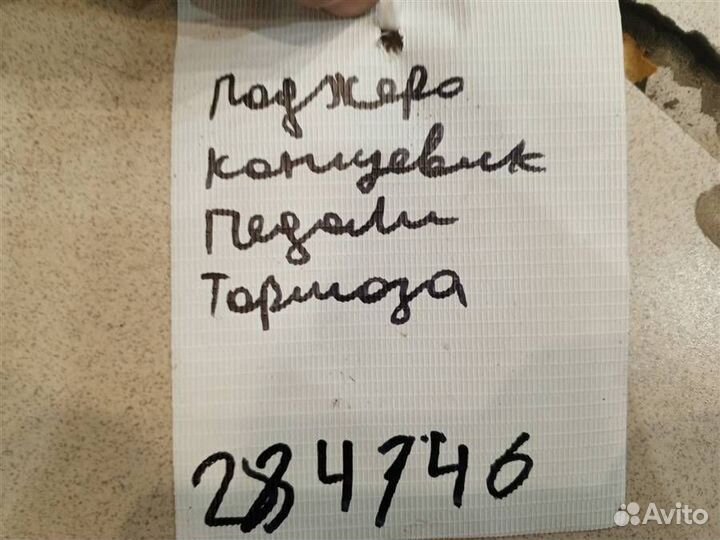 Паджеро
концевик
Педали
Тормоза
284746
Avito